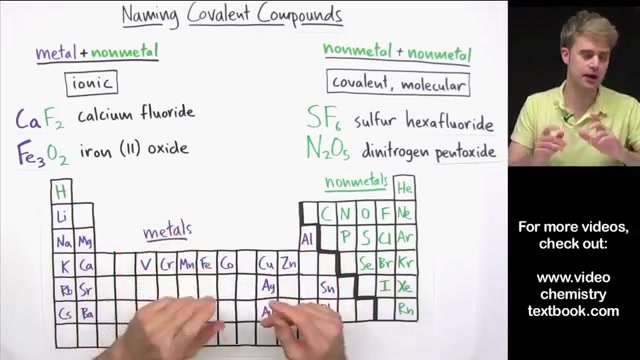 Naming Covalent Compounds
metal + nonmetal
ionic
CaF2 calcium fluoride
Fe3O2 iron (II) oxide
nonmetal + nonmetal
covalent, molecular
SF6 sulfur hexafluoride
N2O5 dinitrogen pentoxide
metals
nonmetals
H He
Li C N O F Ne
Na Mg Al P S Cl Ar
K Ca V Cr Mn Fe Co Cu Zn Se Br Kr
Rb Sr Ag Sn I Xe
Cs Ba Rn
For more videos,
check out:
www.video
chemistry
textbook.com